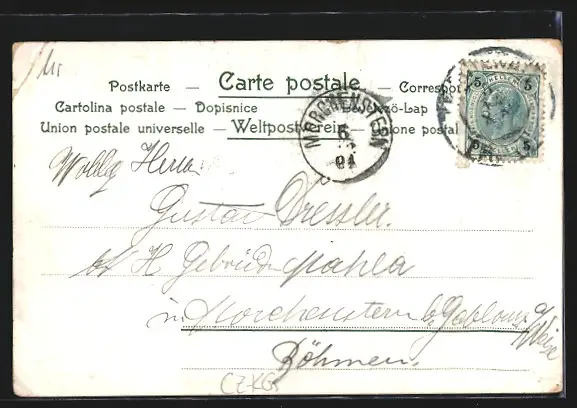 Postkarte — Carte postale — Correspon
Cartolina postale — Dopisnice — Levelező-Lap
Union postale universelle — Weltpostverein — Unione postal
MORCHENSTEIN
5
04
HELLER
5 5
5 5
Wohlg Herrn
Gustav Dressler
H Gebrüder Mahla
in Morchenstern b. Gablonz a/
Neisse
Böhmen.
CZKG